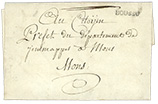 DOUAI
Au Citoyen
Préfet du Département de
Jemmappes à Mons
Mons